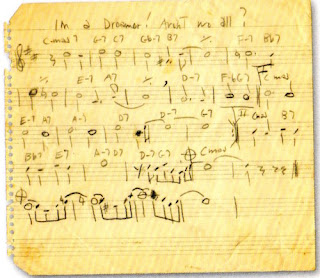 I'm a Dreamer! Aren't we all?
Cmaj7 G-7 C7 Gb-7 B7 ٪ F-7 Bb7
٪ E-7 A7 ٪ D-7 F-6 G7 II Cmaj
E-7 A7 A-7 D7 D-7 G7 II Cmaj B7
Bb7 E7 A-7 D7 D-7 G7 Cmaj